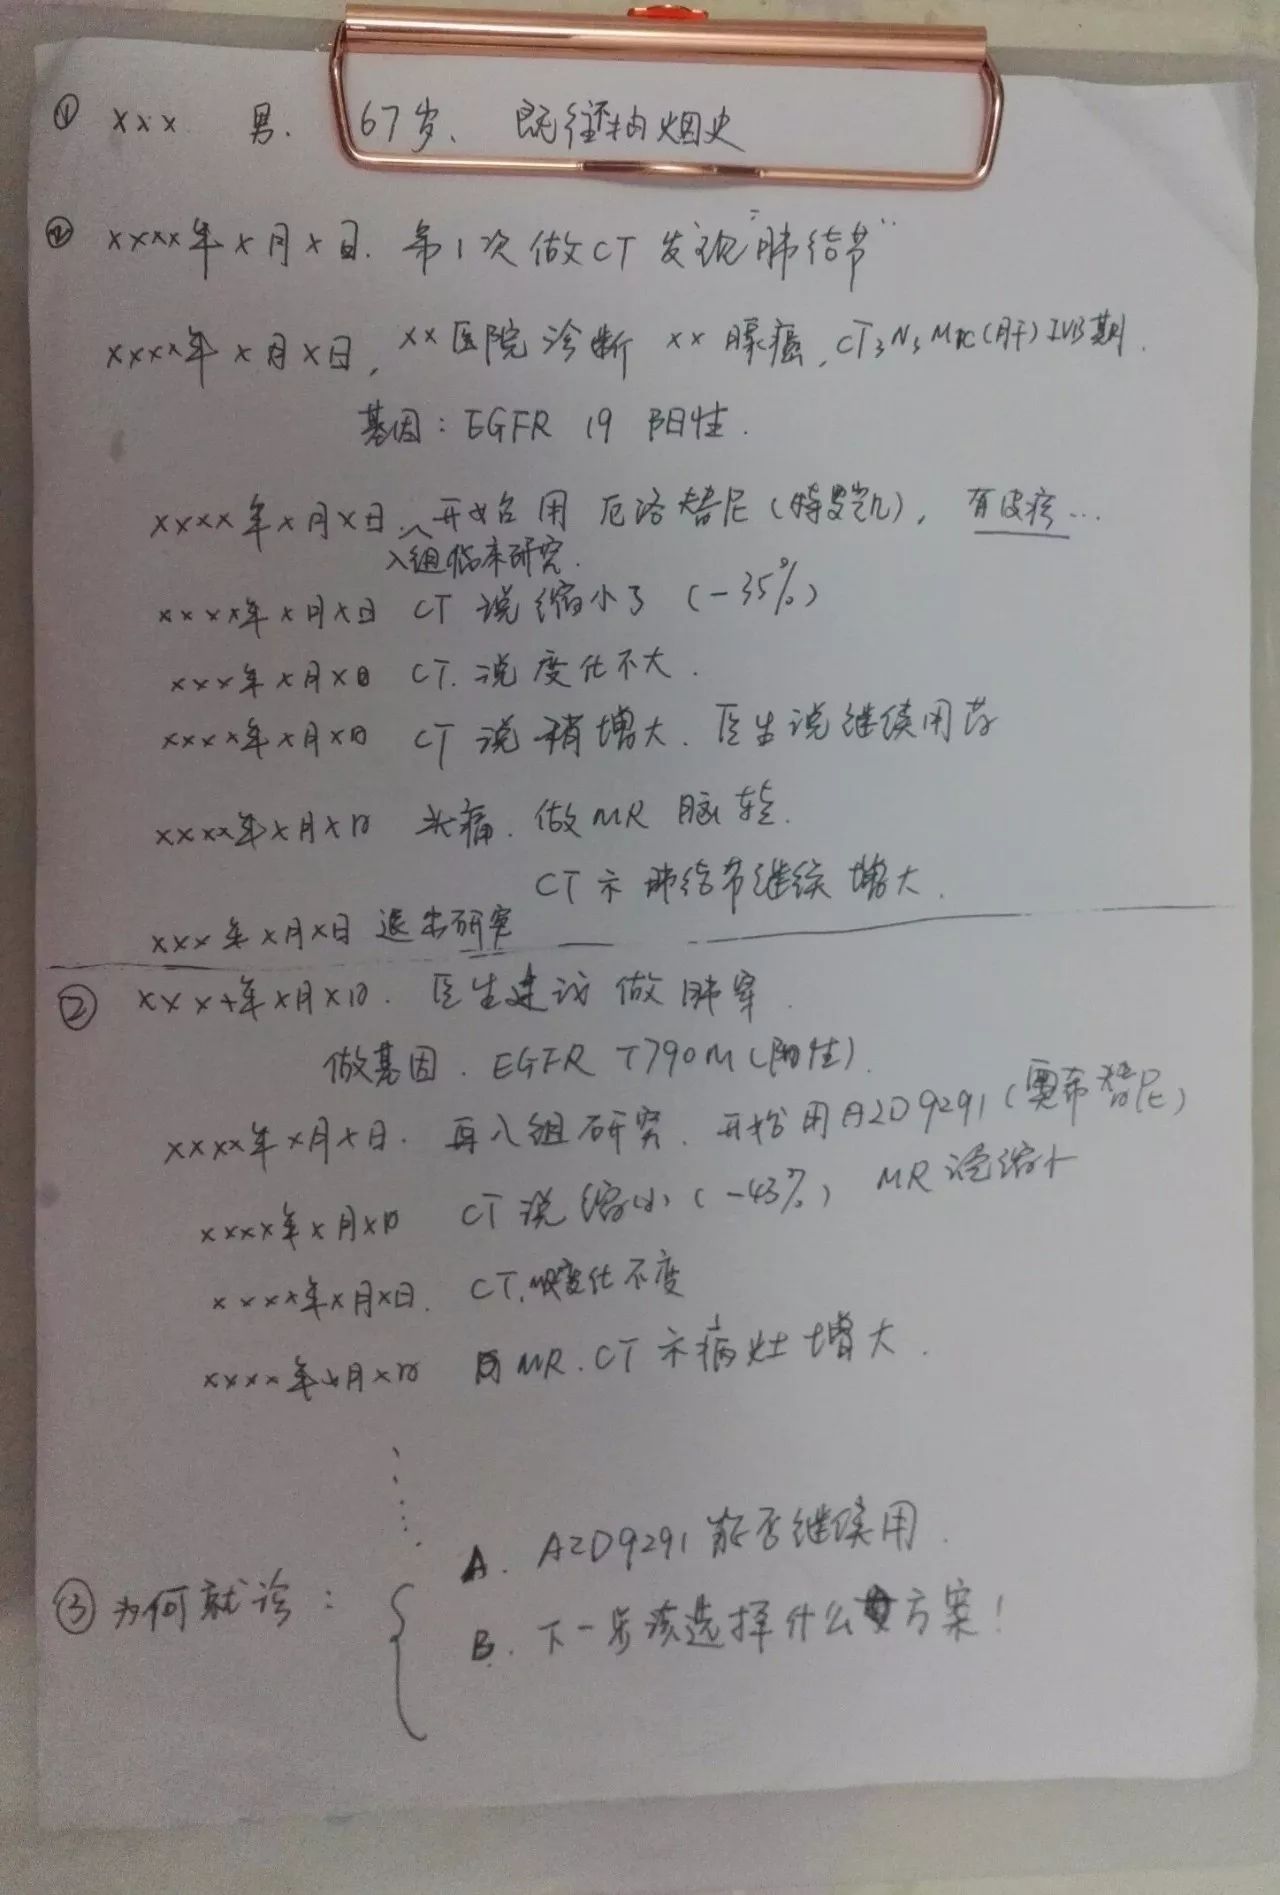 ① xxx 男. 67岁、既往抽烟史
② xxxx年x月x日. 第1次做CT发现"肺结节"
xxxx年x月x日, xx医院诊断 xx腺癌, CT3N3M1C(肝)IVB期.
基因: EGFR 19 阳性.
xxxx年x月x日. 开始用 厄洛替尼(特罗凯), 有皮疹...
入组临床研究.
xxxx年x月x日 CT 说缩小了 (-35%)
xxx年x月x日 CT. 说变化不大.
xxxx年x月x日 CT 说稍增大. 医生说继续用药
xxxx年x月x日 头痛. 做MR 脑转.
CT示 肺结节继续增大.
xxx年x月x日 退出研究
② xxxx年x月x日. 医生建议做肺穿.
做基因. EGFR T790M (阳性).
xxxx年x月x日. 再入组研究. 开始用AZD9291(奥希替尼)
xxxx年x月x日 CT说缩小 (-43%) MR 说缩小
xxxx年x月x日. CT. MR变化不度
xxxx年x月x日 MR. CT示病灶增大.
③ 为何就诊:
A. AZD9291能否继续用.
B. 下一步该选择什么方案!